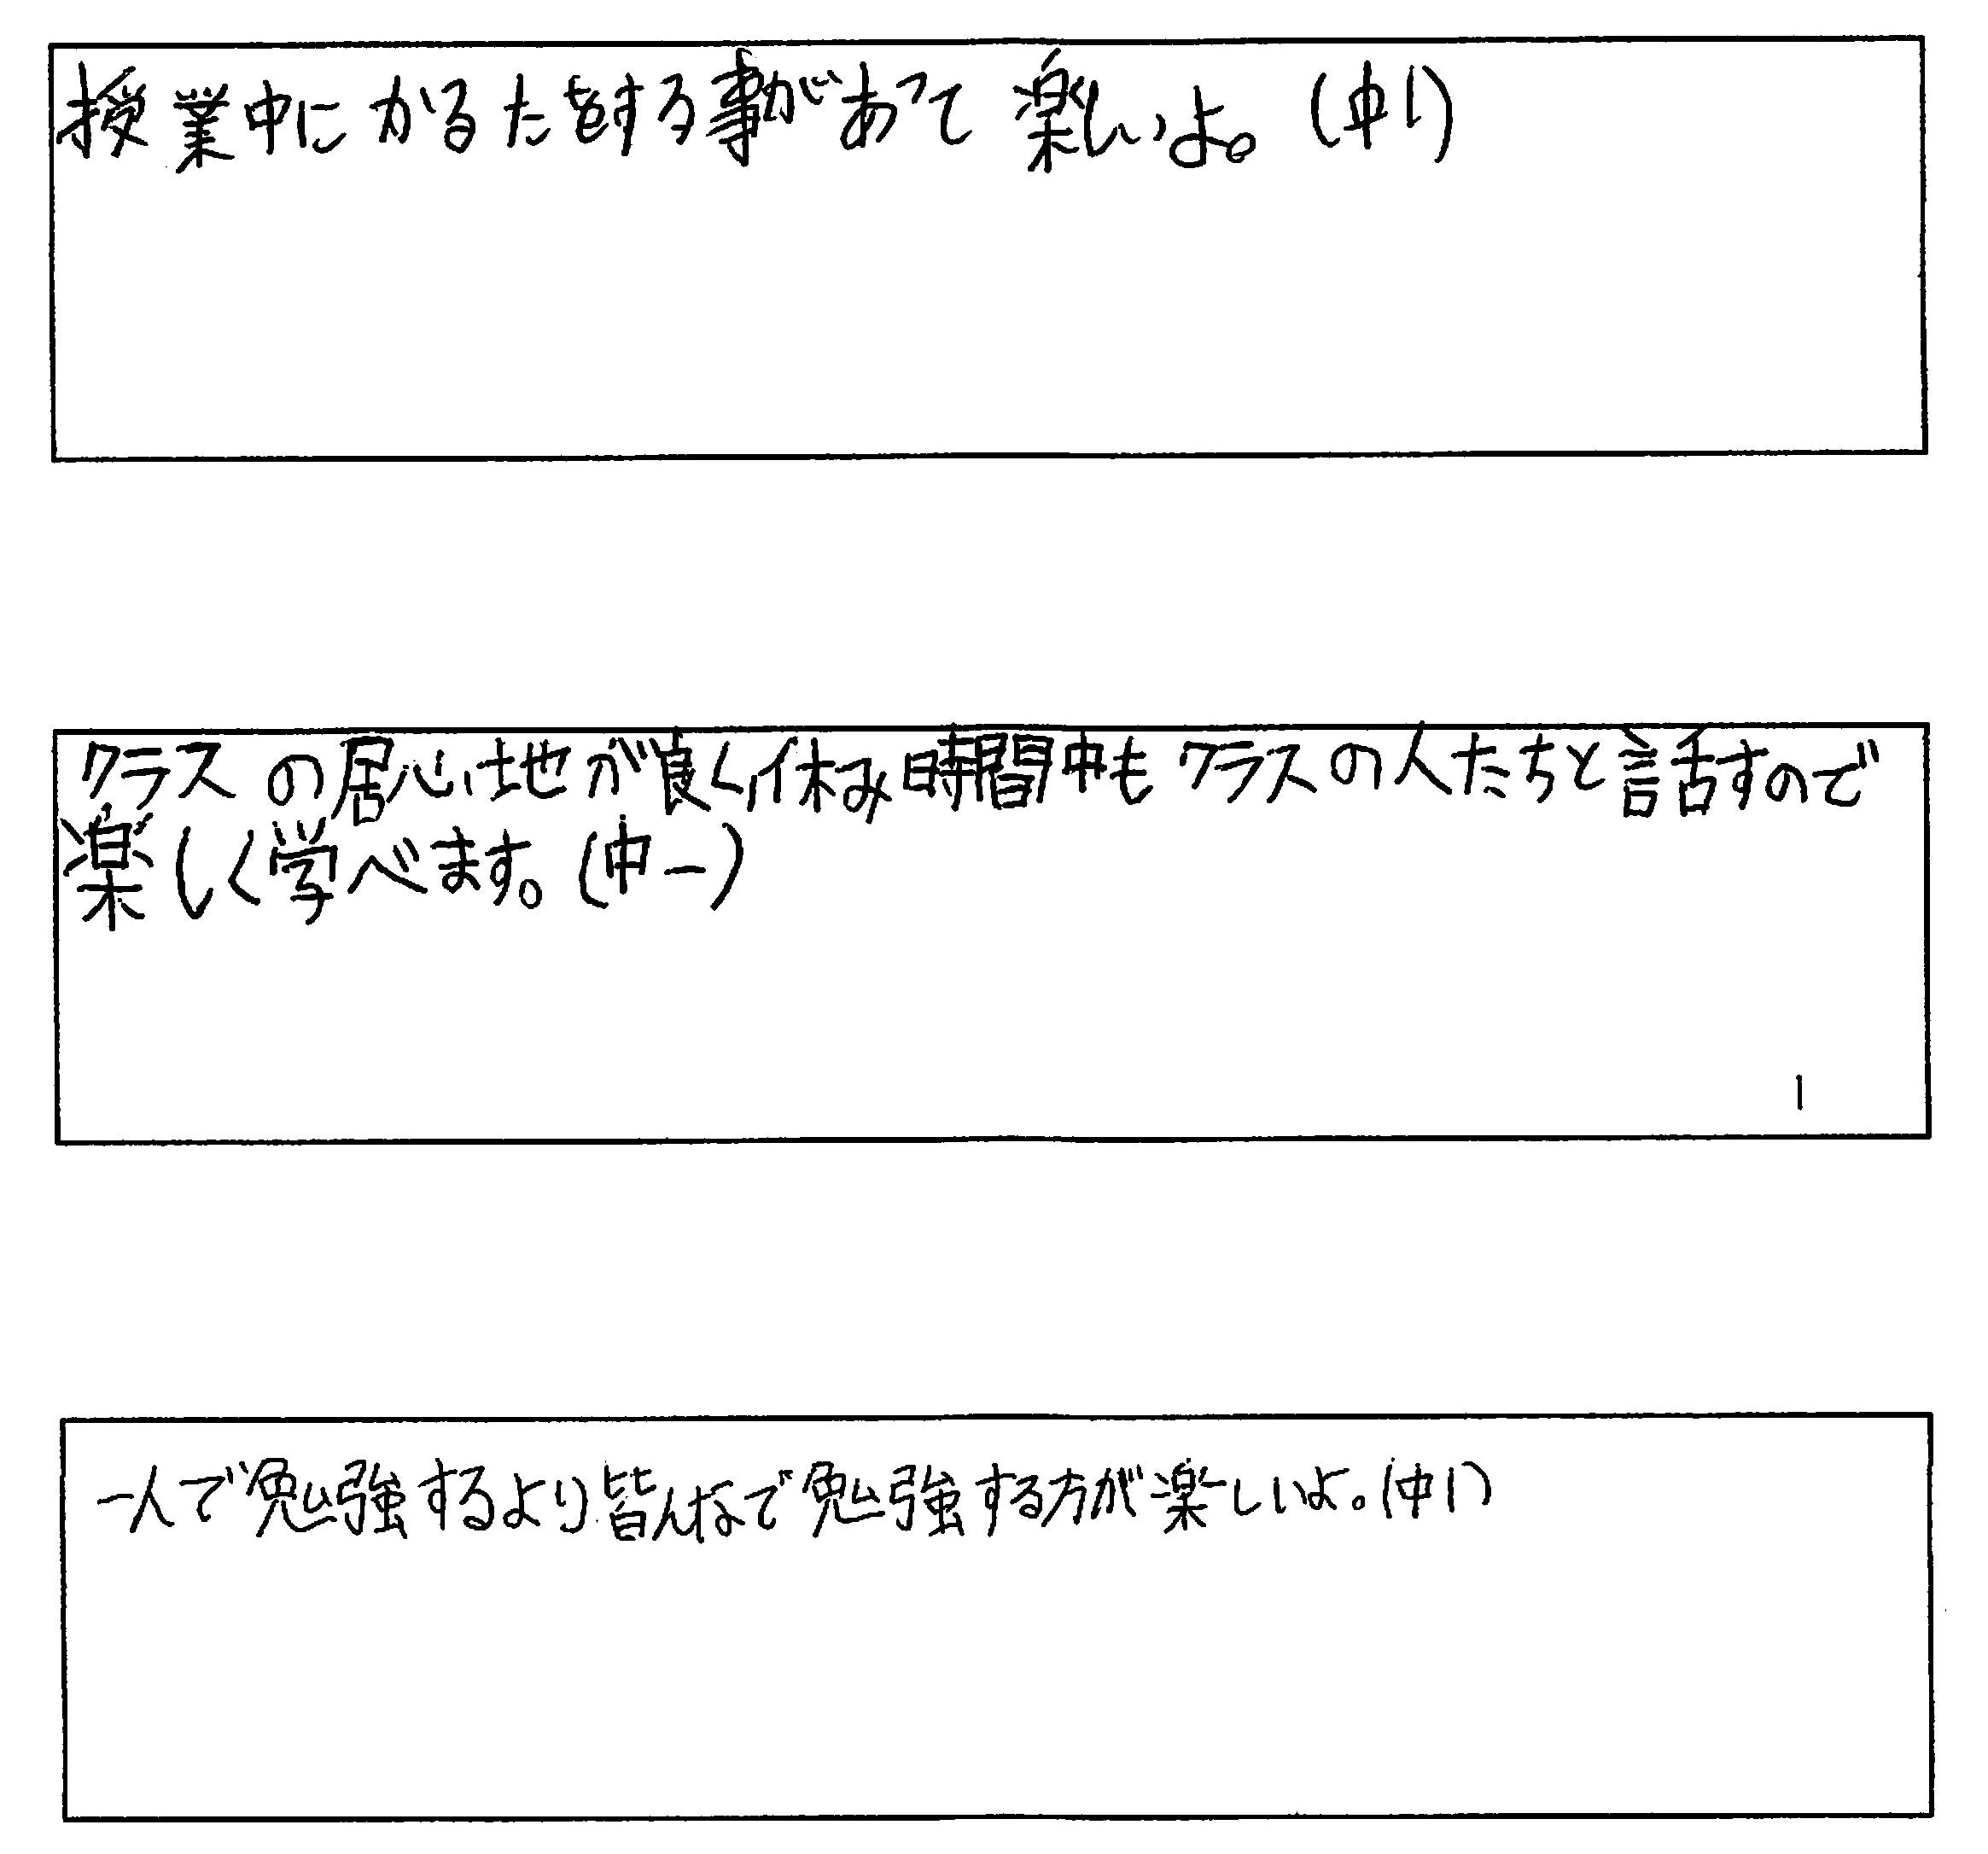 授業中にかるたをする事があって楽しいよ。(中1)
クラスの居心地が良く休み時間中もクラスの人たちと話すので
楽しく学べます。(中一)
一人で勉強するより皆んなで勉強する方が楽しいよ。(中1)